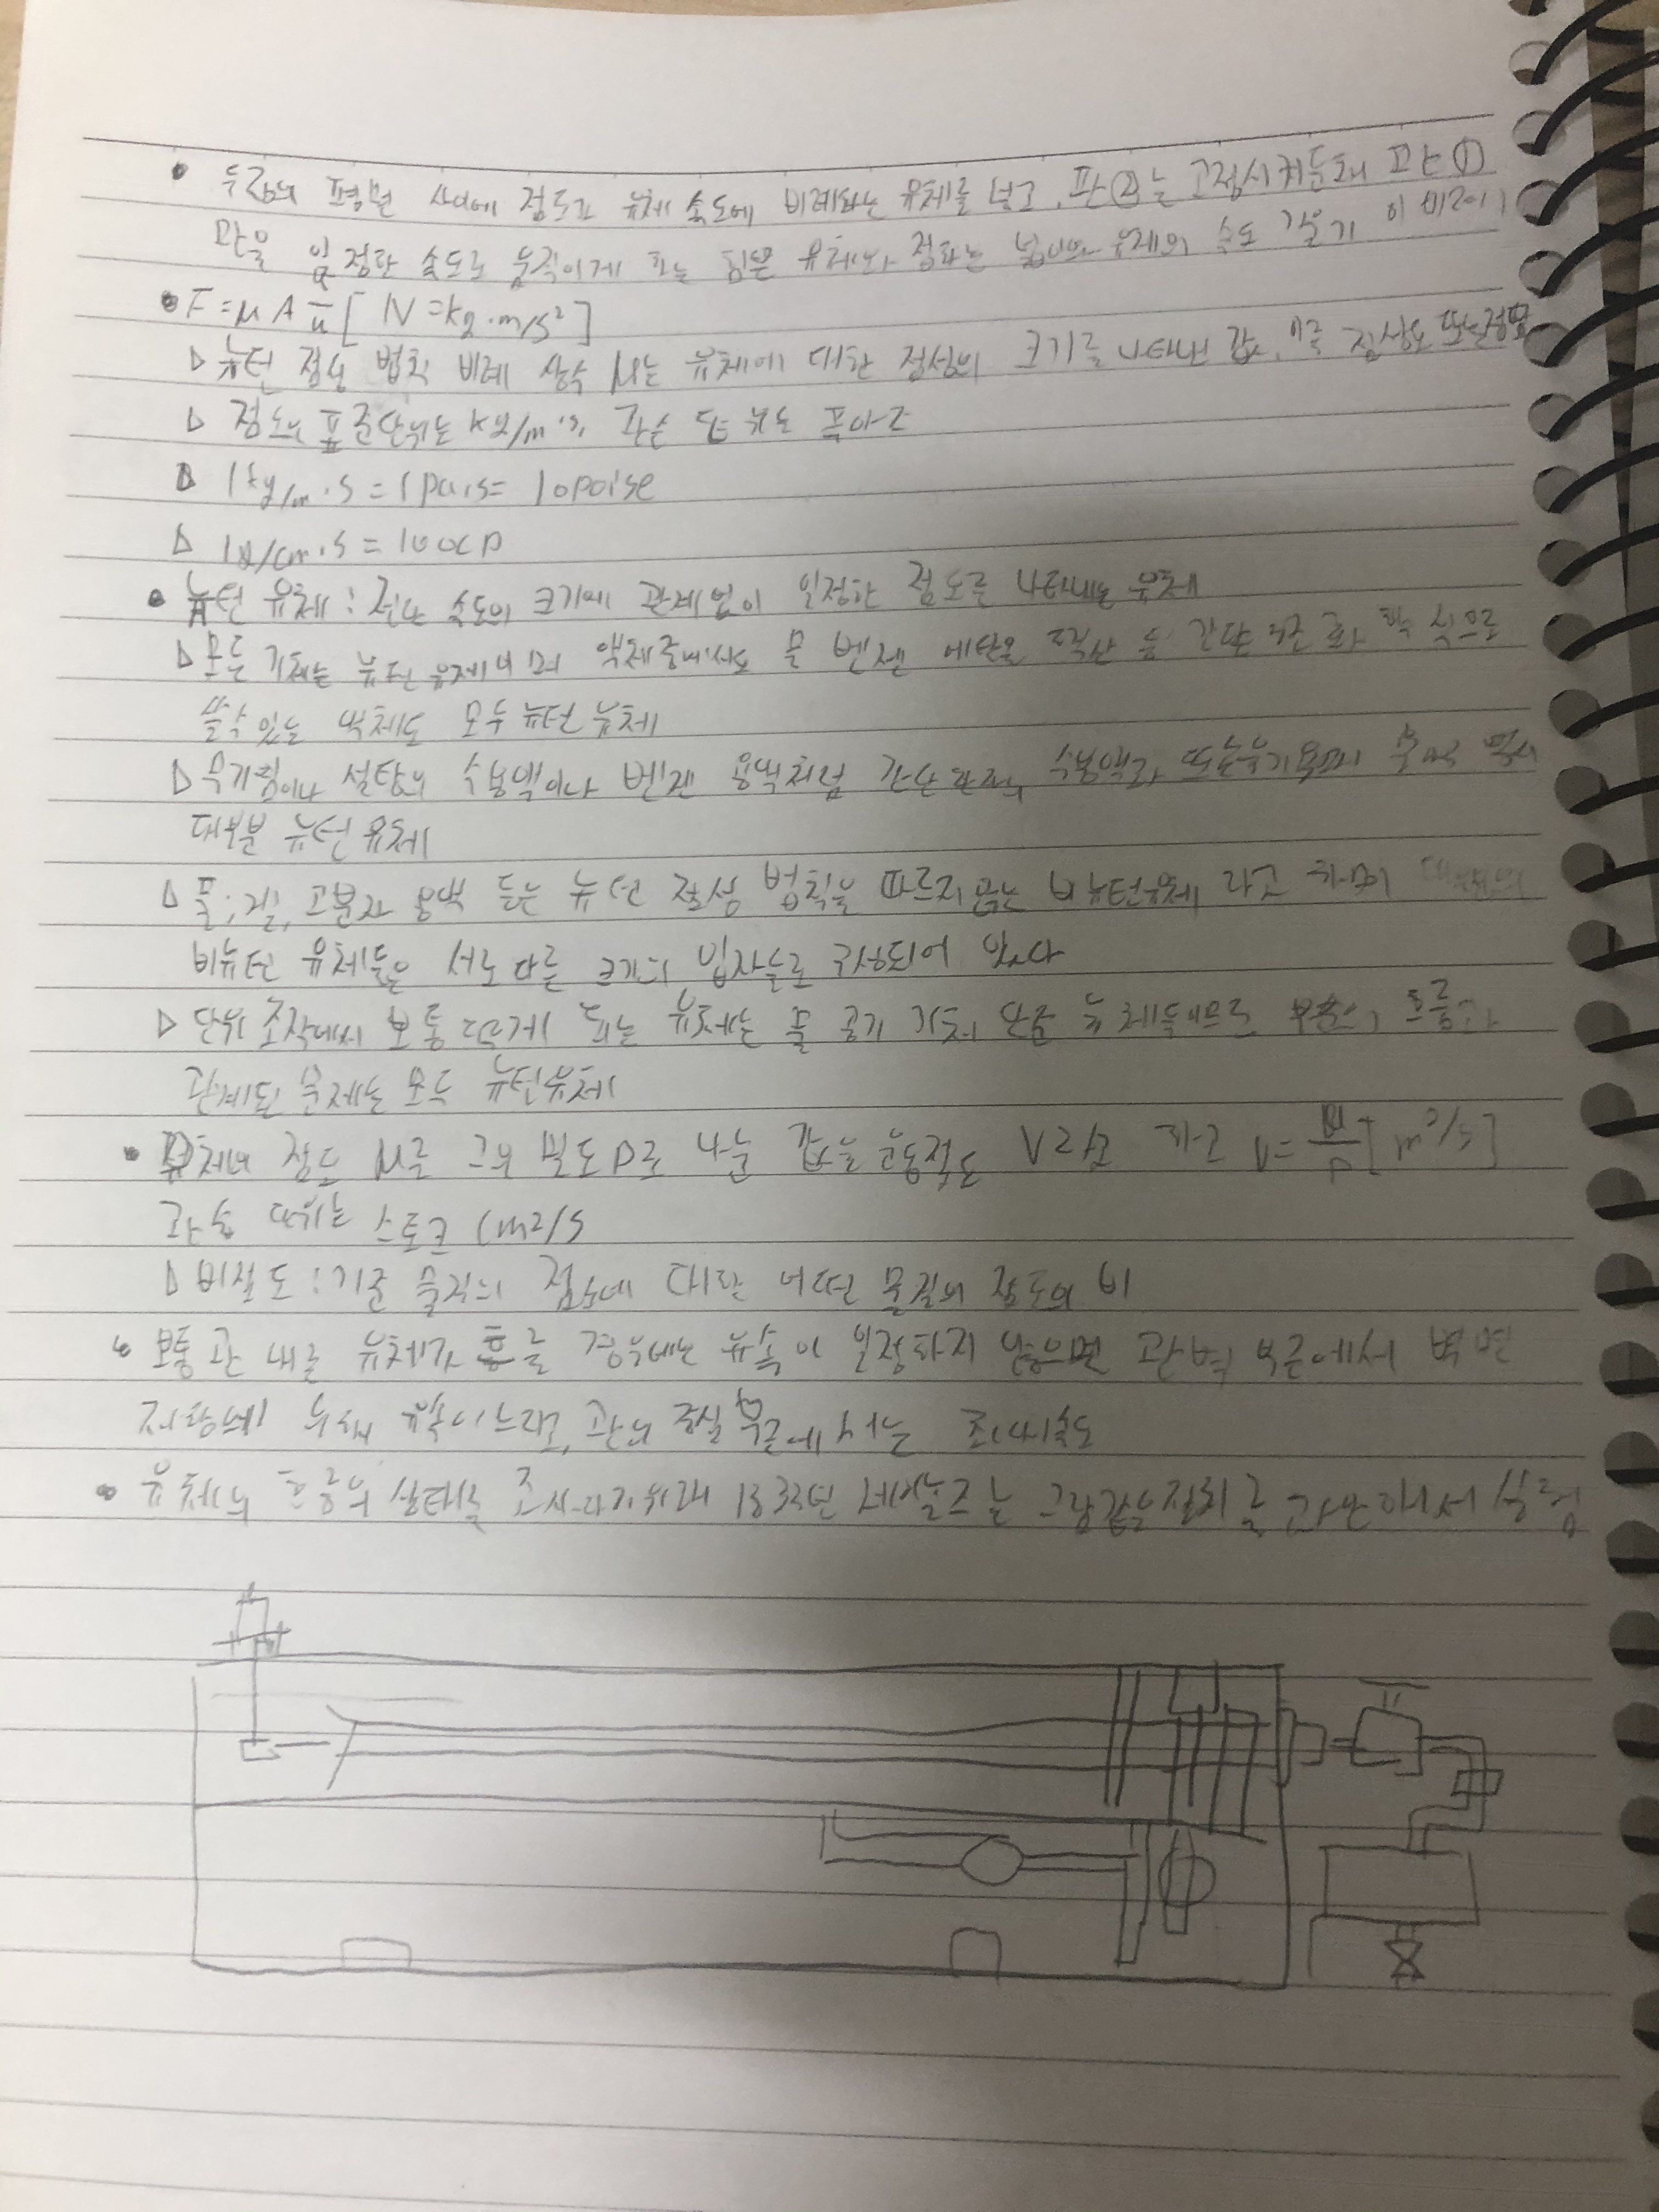 • 두장의 평평판 사이에 점도가 유체 속도에 비례하는 유체를 넣고, 판②는 고정시켜둔채 판①
판을 일정한 속도로 움직이게 하는 힘은 유체와 접하는 넓이와 유체의 속도 기울기 이 비례
• F=μA [N=kg·m/s²]
▷ 뉴턴 점성 법칙 비례 상수 μ는 유체에 대한 점성의 크기를 나타낸 값, 점성도 또는 점도
▷ 점도의 표준단위는 kg/m·s, 관습 단위는 푸아즈
▷ 1kg/m·s = 1pa·s = 10poise
▷ 1g/cm·s = 100cp
• 뉴턴 유체 : 전단 속도의 크기에 관계없이 일정한 점도를 나타내는 유체
▷ 모든 기체는 뉴턴 유체이며 액체중에서도 물 벤젠 에탄올 등 간단한 화학식으로
쓸수 있는 액체도 모두 뉴턴 유체
▷ 무기염이나 설탕의 수용액이나 벤젠 용액처럼 간단한 수용액과 또는 유기용매 용액 역시
대부분 뉴턴 유체
▷ 풀, 고분자 용액 등은 뉴턴 점성 법칙을 따르지 않는 비뉴턴유체 라고 하며 대부분의
비뉴턴 유체들은 서로다른 크기의 입자들로 구성되어 있다
▷ 단위 조작에서 보통 다루게 되는 유체는 물 공기 기타 단순 유체들이므로 흐름과
관계된 문제는 모두 뉴턴유체
• 유체의 점도 μ를 그의 밀도 ρ로 나눈 값을 운동점도 ν라고 하고 ν=μ/ρ [m²/s]
관습 단위는 스토크 cm2/s
▷ 비점도 : 기준 물질의 점도에 대한 어떤 물질의 점도의 비
• 보통 관 내를 유체가 흐를 경우에는 유속이 일정하지 않으면 관벽 부근에서 벽면
저항에 의해 유속이 느리고, 관의 중심 부근에서는 최대속도
• 유체의 흐름의 상태를 조사하기위해 1883년 레이놀즈는 그림같은장치를 고안해서 실험